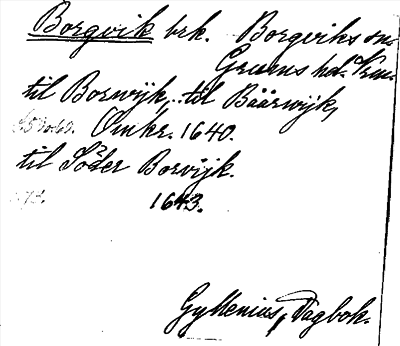 Borgvik brk. Borgviks sn.
Grums hd. Vrm.
til Borwijk, til Båårwijk,
S. 53 o. 60. Omkr. 1640.
til Söder Borvijk.
73. 1643.
Gyllenius, Dagbok.